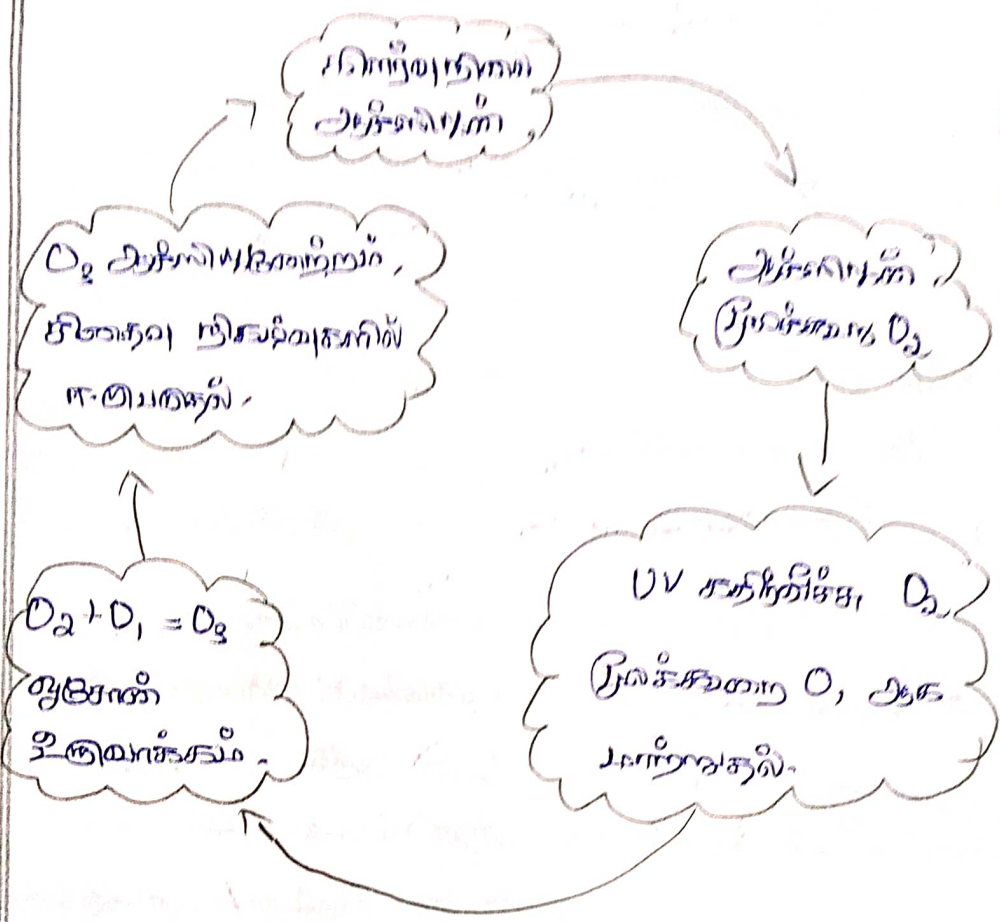 அக்சிஜன்
அக்சிஜன்
மூலக்கூறு O₂
UV கதிர்வீச்சு O₂
மூலக்கூறை O₁ ஆக
மாற்றுதல்.
O₂ + O₁ = O₃
ஓசோன்
உருவாக்கம்.
O₃
சிதைவு நிகழ்வுகளில்
ஈடுபடுதல்.